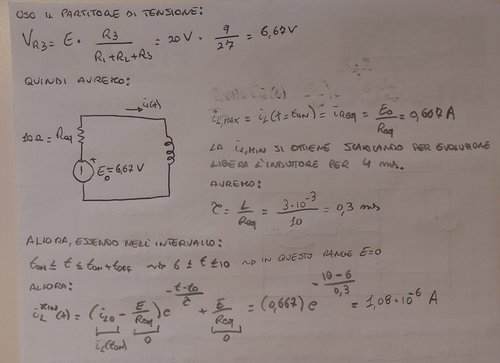 USO IL PARTITORE DI TENSIONE:
V_R3 = E · R3 / (R1+R2+R3) = 20V · 9/27 = 6,67V
QUINDI AVREMO:
i_L(t)
10Ω = Req
E0 = 6,67 V
i_L,MAX = i_L(t=tON) = i_Req = E0/Req = 0,667 A
LA i_L,MIN SI OTTIENE SCARICANDO PER EVOLUZIONE
LIBERA L'INDUTTORE PER 4 ms.
AVREMO:
τ = L/Req = 3·10^-3/10 = 0,3 ms
ALLORA, ESSENDO NELL'INTERVALLO:
tON ≤ t ≤ tON+tOFF ⇝ 6 ≤ t ≤ 10 ⇝ IN QUESTO RANGE E=0
ALLORA:
i_L^MIN(t) = (i_L0 - E/Req) e^(-(t-t0)/τ) + E/Req = (0,667) e^(-(10-6)/0,3) = 1,08·10^-6 A
i_L(tON) 0 0